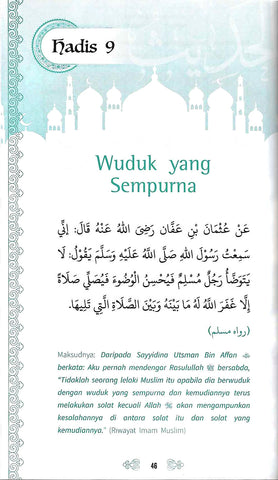 Hadis 9
Wuduk yang
Sempurna
عَنْ عُثْمَانَ بْنِ عَفَّانَ رَضِىَ اللهُ عَنْهُ قَالَ: إِنِّي
سَمِعْتُ رَسُوْلَ اللهِ صَلَّى اللَّهُ عَلَيْهِ وَسَلَّمَ يَقُوْلُ: لَا
يَتَوَضَّأُ رَجُلٌ مُسْلِمٌ فَيُحْسِنُ الْوُضُوْءَ فَيُصَلِّي صَلَاةً
إِلَّا غَفَرَ اللهُ لَهُ مَا بَيْنَهُ وَبَيْنَ الصَّلَاةِ الَّتِي تَلِيهَا.
(رواه مسلم)
Maksudnya: Daripada Sayyidina Utsman Bin Affan
berkata: Aku pernah mendengar Rasulullah ﷺ bersabda,
"Tidaklah seorang lelaki Muslim itu apabila dia berwuduk
dengan wuduk yang sempurna dan kemudiannya terus
melakukan solat kecuali Allah ﷻ akan mengampunkan
kesalahannya di antara solat itu dan solat yang
kemudiannya." (Riwayat Imam Muslim)
46